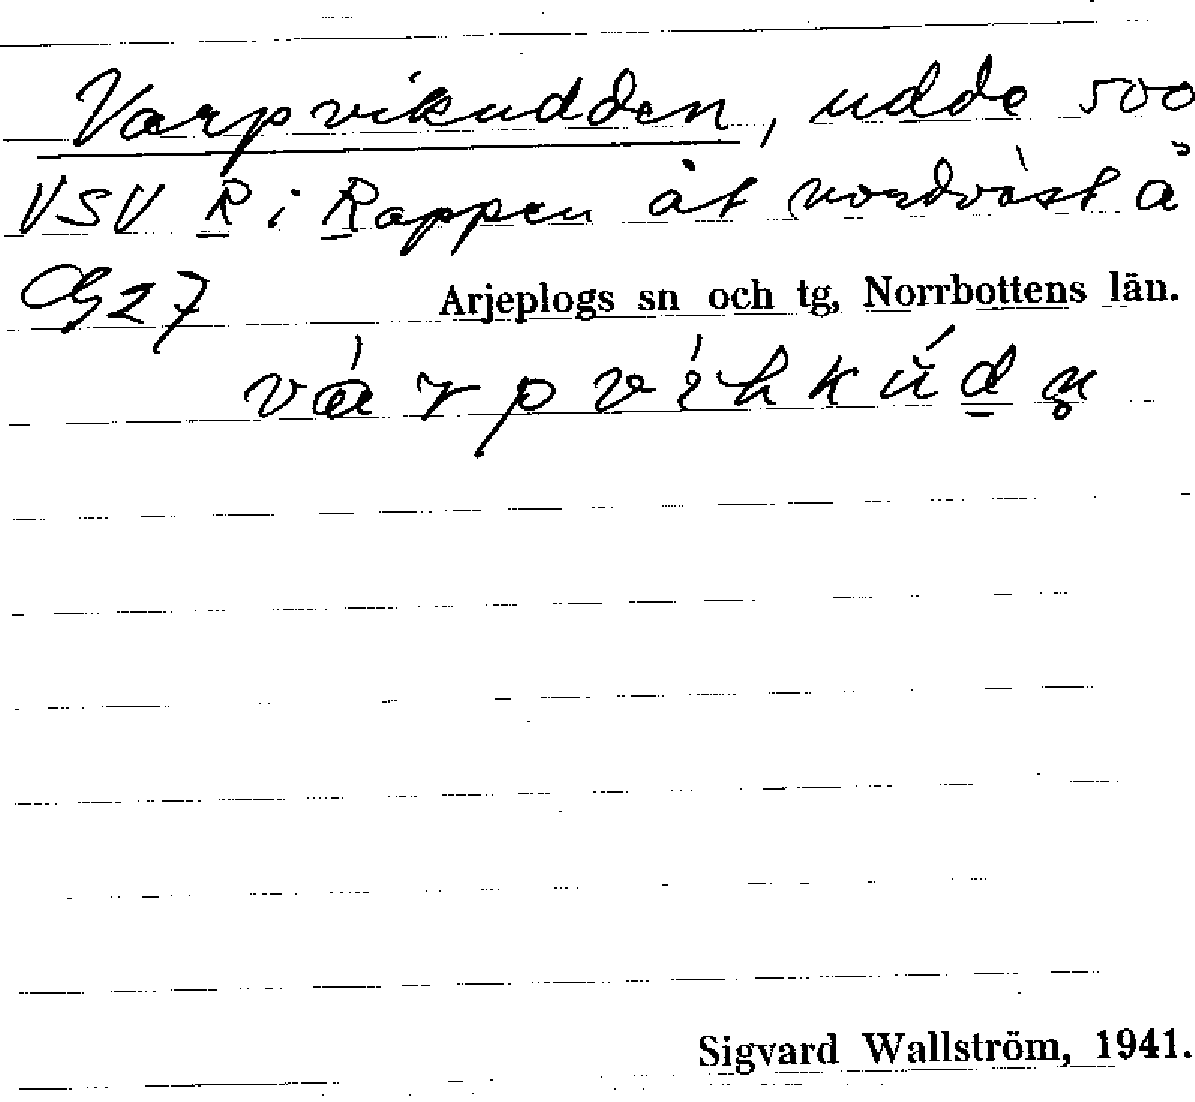 Varpvikudden, udde 500
VSV R i Rappen åt nordväst å
G27
Arjeplogs sn och tg, Norrbottens län.
Sigvard Wallström, 1941.